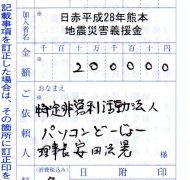 記載事項を訂正した場合は、その箇所に訂正印を
加入者名
日赤平成28年熊本
地震災害義援金
金額
千 百 十 万 千 百 十 円
200000
ご依頼人
おなまえ
特定非営利活動法人
パソコンどーじょー
理事長 安田
(消費税込み)